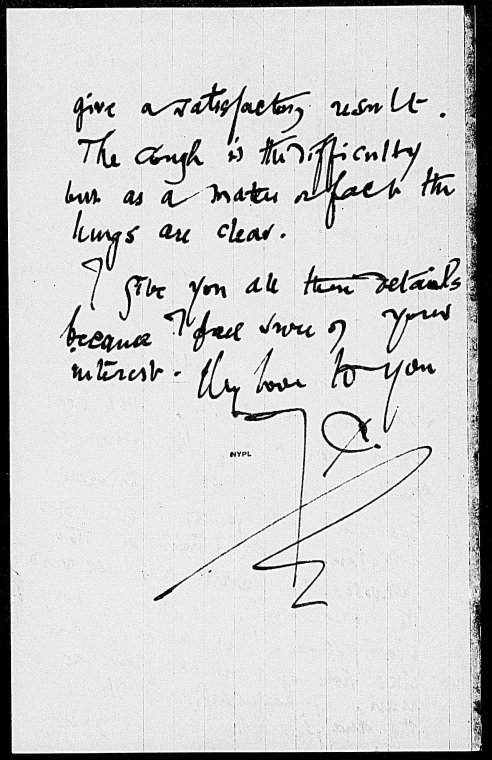 give a satisfactory result.
The cough is the difficulty
but as a matter of fact the
lungs are clear.
I give you all these details
because I feel sure of your
interest. My love to you
NYPL